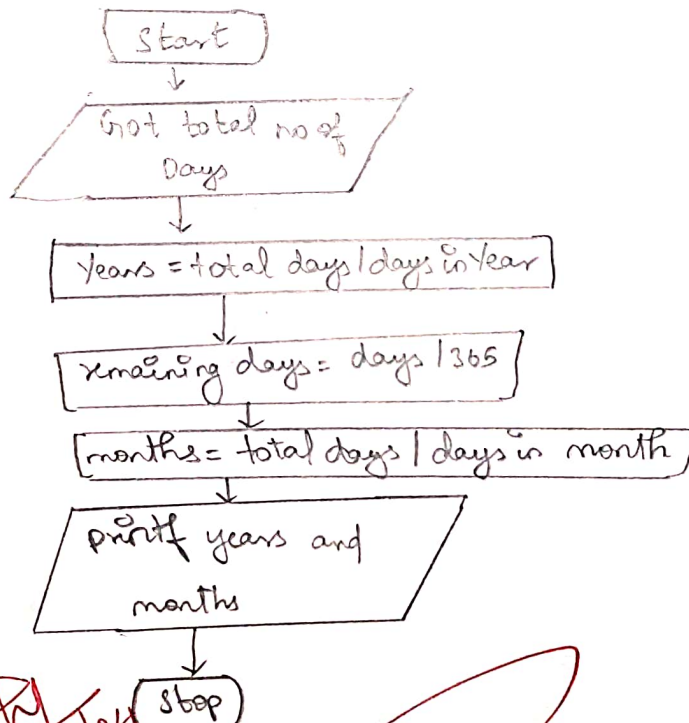 Start
Got total no of
Days
years = total days / days in Year
remaining days = days / 365
months = total days / days in month
printf years and
months
Stop